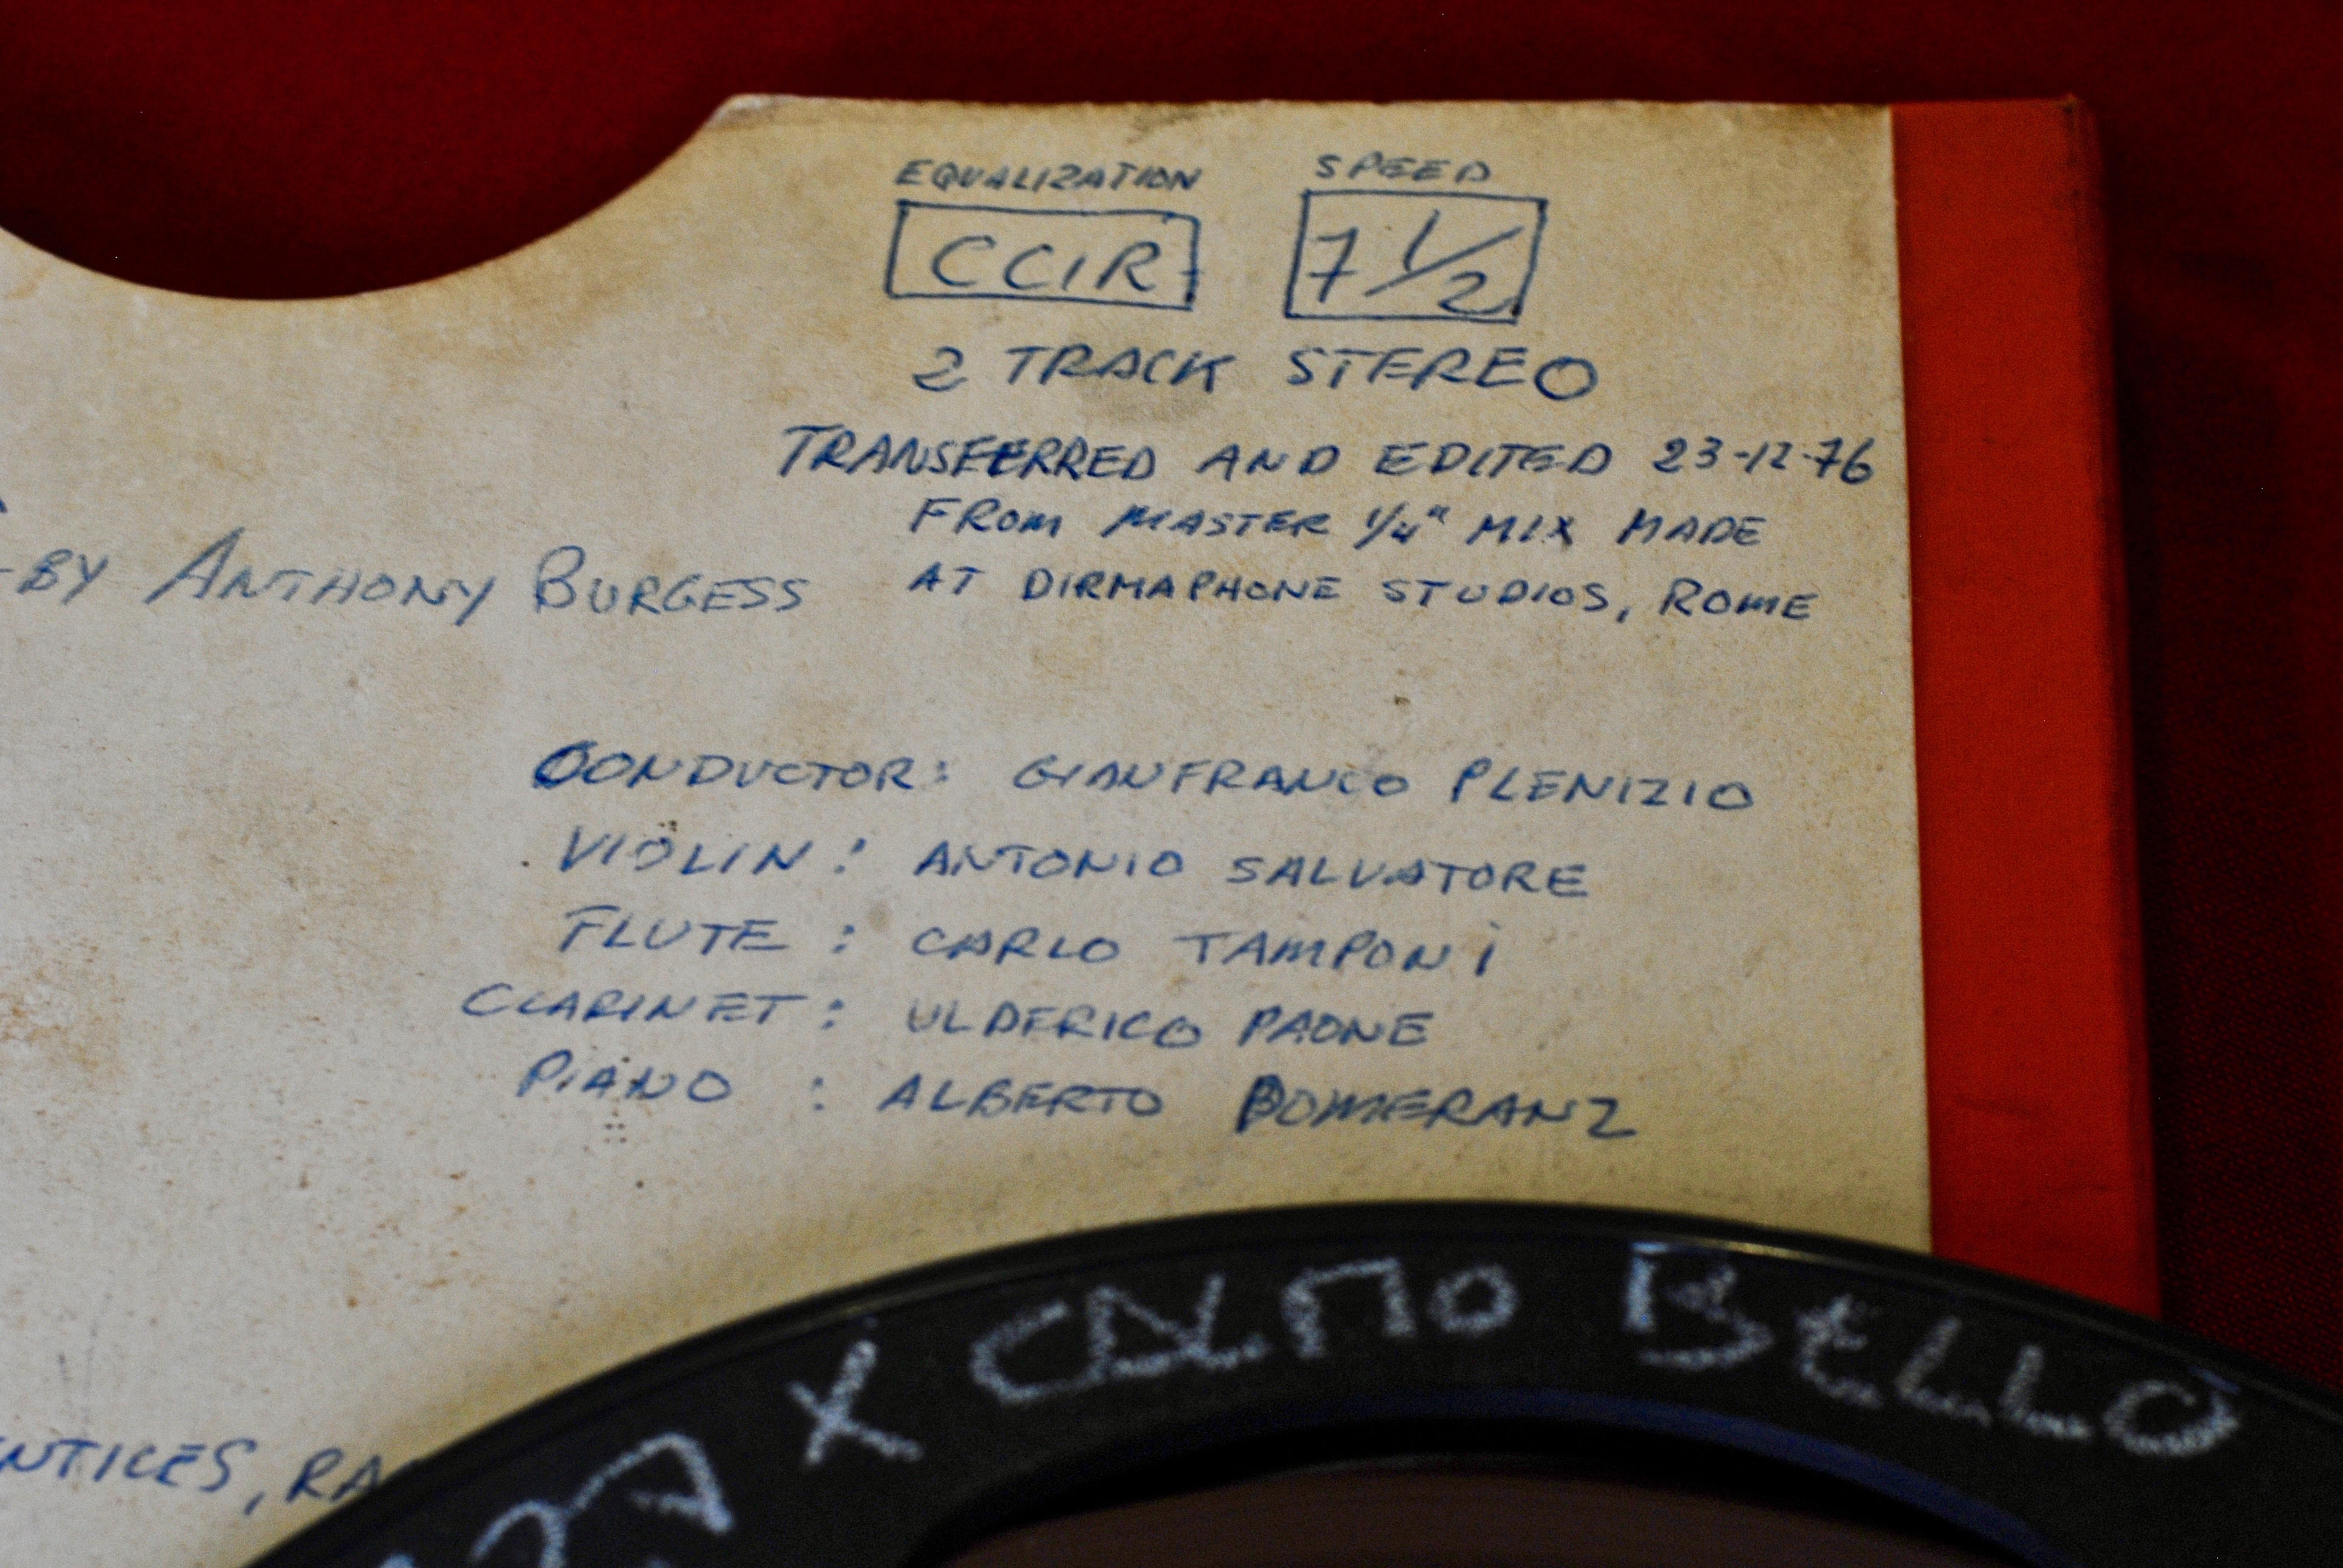 EQUALIZATION SPEED
CCIR 7 1/2
2 TRACK STEREO
TRANSFERRED AND EDITED 23-12-76
FROM MASTER 1/4" MIX MADE
-BY ANTHONY BURGESS AT DIRMAPHONE STUDIOS, ROME
CONDUCTOR: GIANFRANCO PLENIZIO
VIOLIN: ANTONIO SALVATORE
FLUTE: CARLO TAMPONI
CLARINET: ULDERICO PAONE
PIANO: ALBERTO POMERANZ
X CALMO BELLO
NTICES, RA